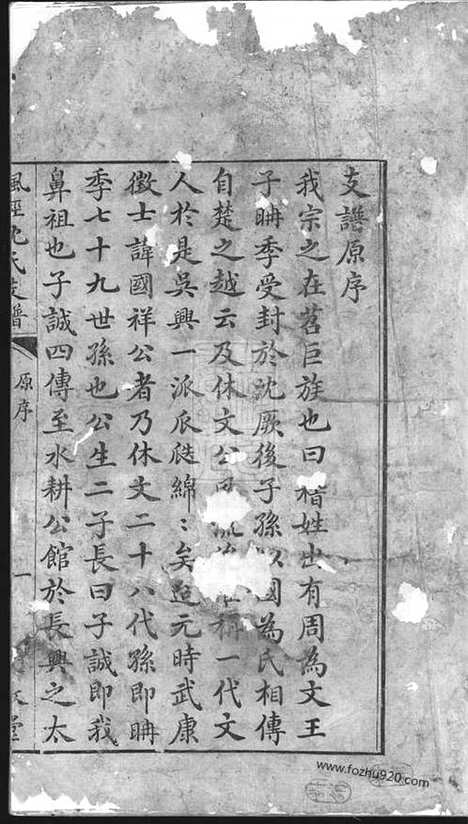 支譜原序
我宗之在苕巨族也曰稽姓出有周為文王
子聃季受封於沈厥後子孫以國為氏相傳
自楚之越云及休文公 稱一代文
人於是吳興一派瓜瓞綿〻矣迨元時武康
徵士諱國祥公者乃休文二十八代孫即聃
季七十九世孫也公生二子長曰子誠即我
鼻祖也子誠四傳至水耕公館於長興之太
風涇沈氏支譜 原序 一 堂
www.fozhu920.com